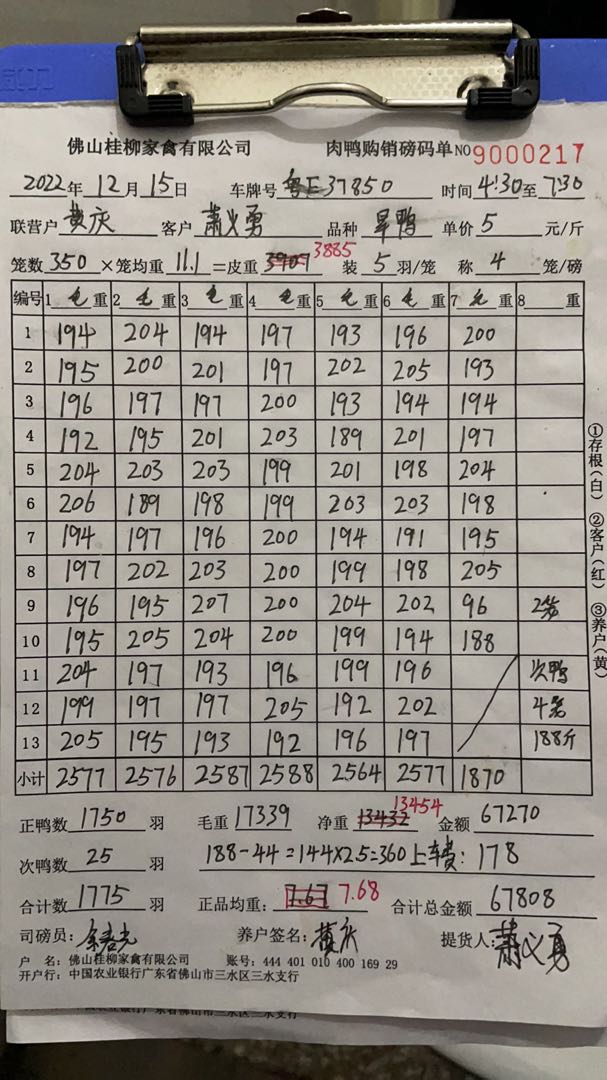 佛山桂柳家禽有限公司 肉鸭购销磅码单 NO 9000217
2022年 12月 15日 车牌号 粤E37850 时间 4:30 至 7:30
联营户 黄庆 客户 萧义勇 品种 旱鸭 单价 5 元/斤
笼数 350 ×笼均重 11.1 =皮重 3907 3885 装 5 羽/笼 称 4 笼/磅
编号 1 毛 重 2 毛 重 3 毛 重 4 毛 重 5 毛 重 6 毛 重 7 毛 重 8 重
1 194 204 194 197 193 196 200
2 195 200 201 197 202 205 193
3 196 197 197 200 193 194 194
4 192 195 201 203 189 201 197
5 204 203 203 199 201 198 204
6 206 189 198 199 203 203 198
7 194 197 196 200 194 191 195
8 197 202 203 200 199 198 205
9 196 195 207 200 204 202 96 2笼
10 195 205 204 200 199 194 188
11 204 197 193 196 199 196 次鸭
12 199 197 197 205 192 202 4笼
13 205 195 193 192 196 197 188斤
小计 2577 2576 2587 2588 2564 2577 1870
正鸭数 1750 羽 毛重 17339 净重 13432 13454 金额 67270
次鸭数 25 羽 188-44=144×2.5=360 上车费: 178
合计数 1775 羽 正品均重: 7.67 7.68 合计总金额 67808
司磅员: 养户签名: 黄庆 提货人: 萧义勇
户 名: 佛山桂柳家禽有限公司 账号: 444 401 010 400 169 29
开户行: 中国农业银行广东省佛山市三水区三水支行
①存根(白) ②客户(红) ③养户(黄)
中国农业银行广东省佛山市三水区三水支行